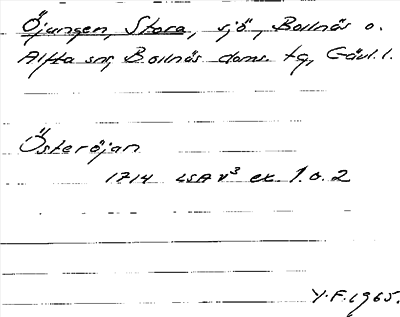 Öjungen, Stora, sjö, Bollnäs o.
Alfta snr, Bollnäs doms. tg, Gävl. l.
Österöjan
1714 LSA V³ ex. 1. o. 2
Y.F. 1965.